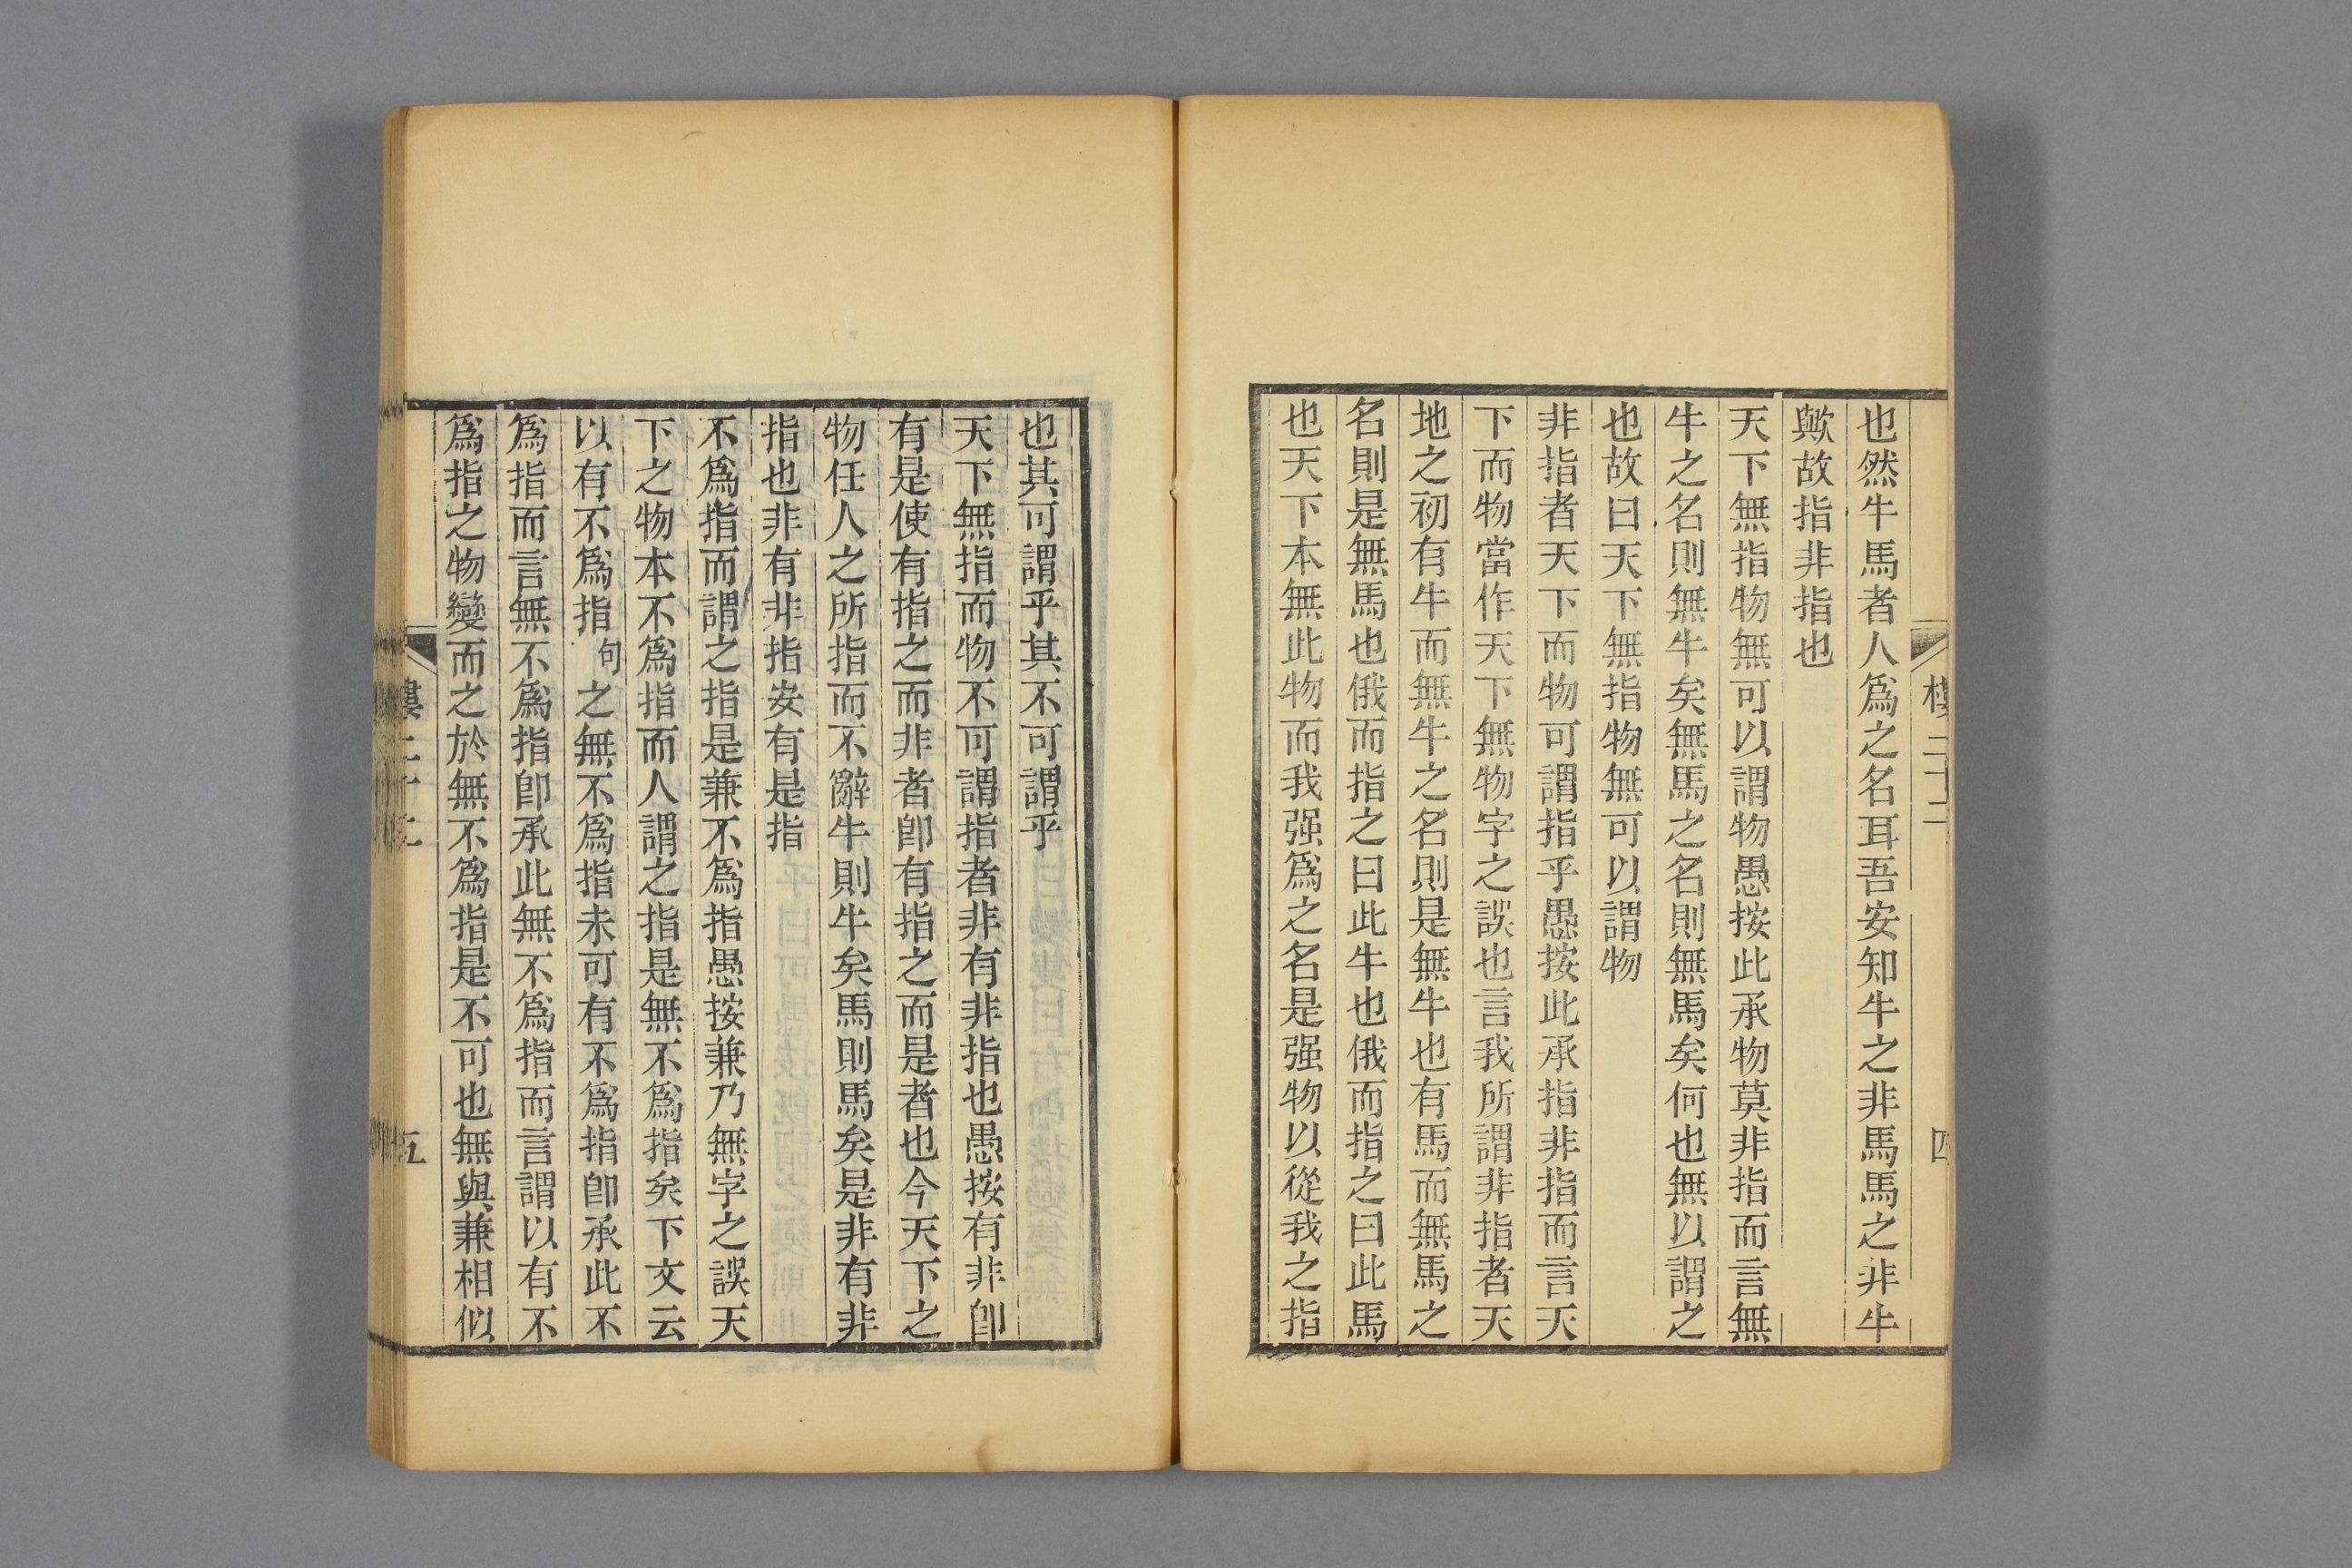 也然牛馬者人爲之名耳吾安知牛之非馬馬之非牛
歟故指非指也
天下無指物無可以謂物愚按此承物莫非指而言無
牛之名則無牛矣無馬之名則無馬矣何也無以謂之
也故曰天下無指物無可以謂物
非指者天下而物可謂指乎愚按此承指非指而言天
下而物當作天下無物字之誤也言我所謂非指者天
地之初有牛而無牛之名則是無牛也有馬而無馬之
名則是無馬也俄而指之曰此牛也俄而指之曰此馬
也天下本無此物而我强爲之名是强物以從我之指
也其可謂乎其不可謂乎
天下無指而物不可謂指者非有非指也愚按有非卽
有是使有指之而非者卽有指之而是者也今天下之
物任人之所指而不辭牛則牛矣馬則馬矣是非有非
指也非有非指安有是指
不爲指而謂之指是兼不爲指愚按兼乃無字之誤天
下之物本不爲指而人謂之指是無不爲指矣下文云
以有不爲指句之無不爲指未可有不爲指卽承此不
爲指而言無不爲指卽承此無不爲指而言謂以有不
爲指之物變而之於無不爲指是不可也無與兼相似
五